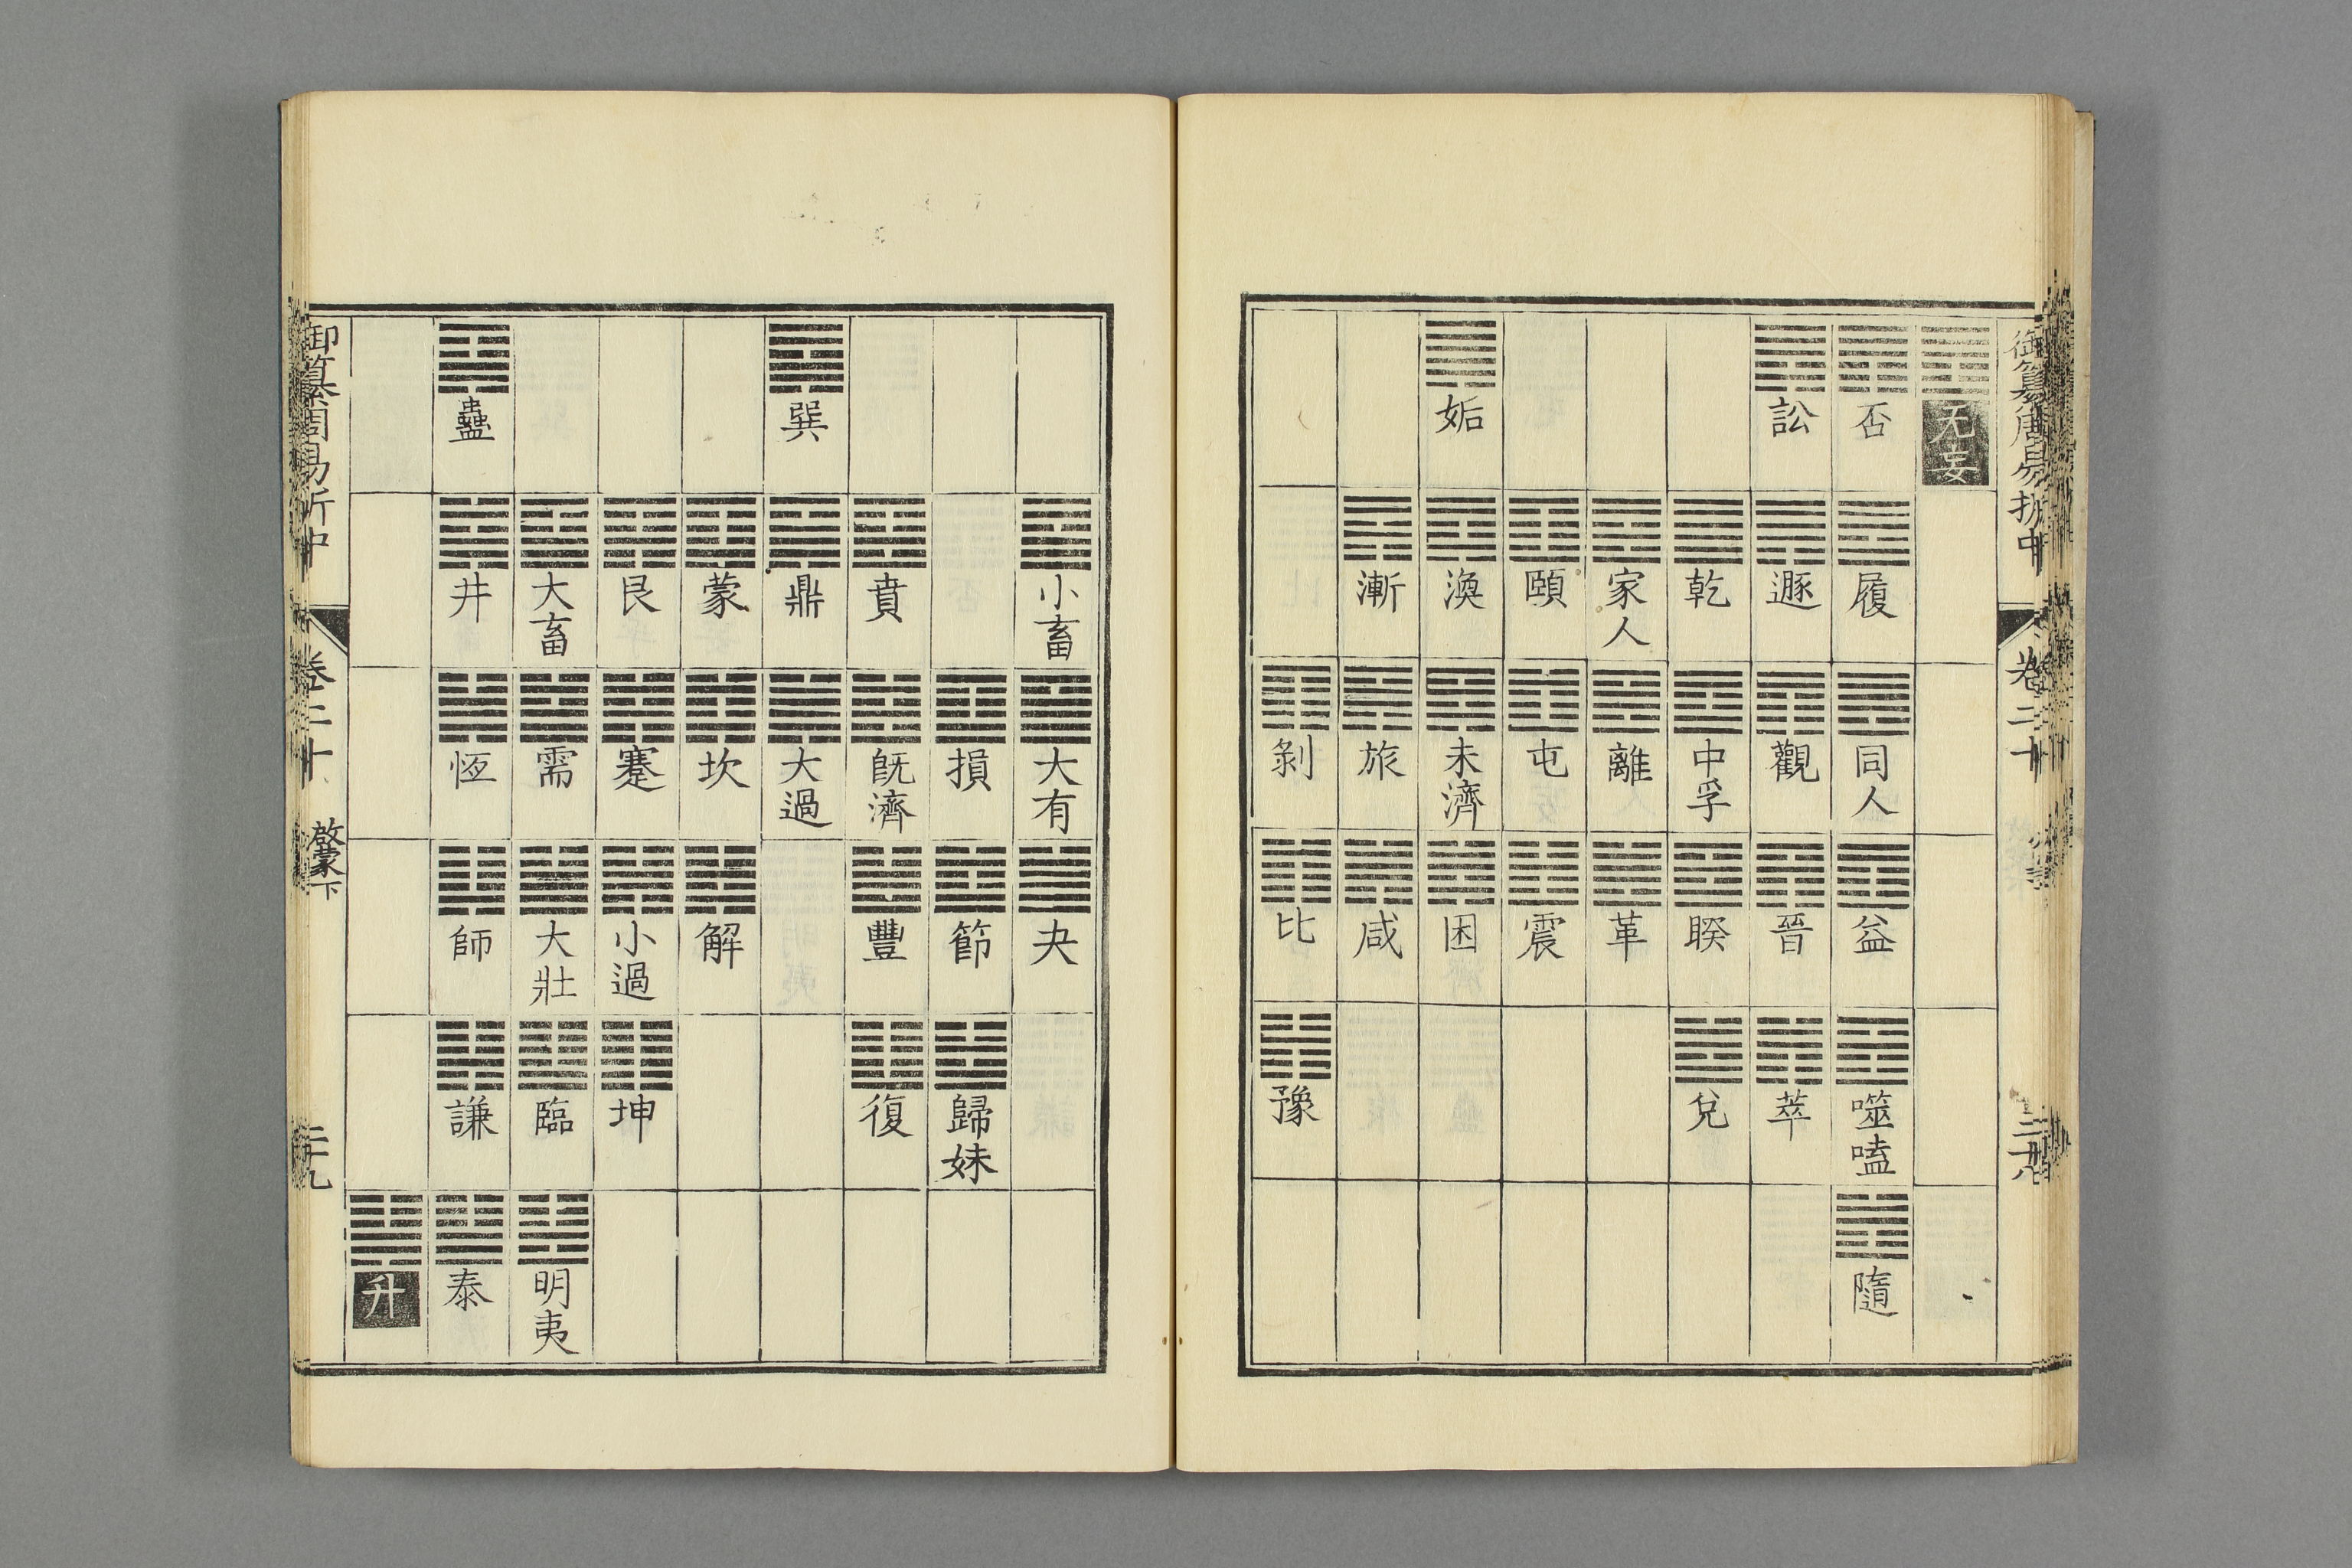 御纂周易折中 卷二十
无妄
否 履 同人 益 噬嗑 隨
訟 遯 觀 晉 萃
乾 中孚 睽 兌
家人 離 革
頤 屯 震
姤 渙 未濟 困
漸 旅 咸
剝 比 豫
小畜 大有 夬
損 節 歸妹
賁 旣濟 豐 復
巽 鼎 大過
蒙 坎 解
艮 蹇 小過 坤
大畜 需 大壯 臨 明夷
蠱 井 恆 師 謙 泰
升
御纂周易折中 卷二十 啟蒙下